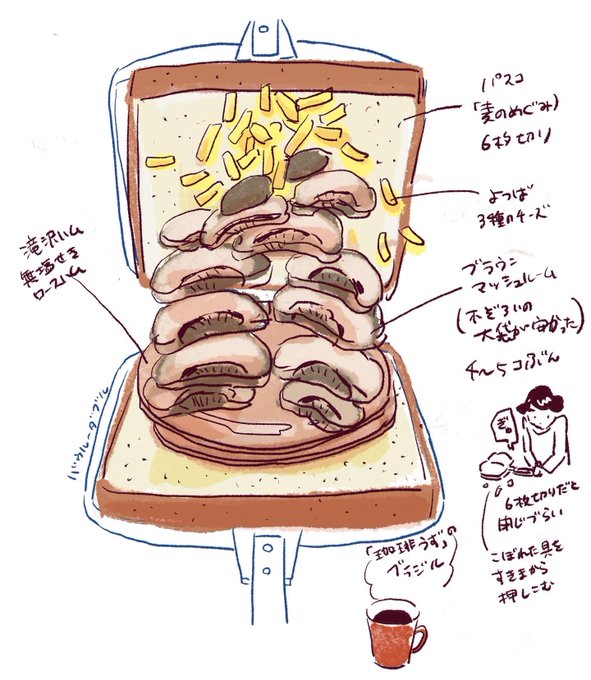 パスコ
「麦のめぐみ」
6枚切り
よつば
3種のチーズ
滝沢ハム
無塩せき
ロースハム
ブラウン
マッシュルーム
(不ぞろいの
大袋が安かった)
4〜5コぶん
バウルーダブル
ぎゅ
6枚切りだと
閉じづらい
こぼれた具を
すきまから
押しこむ
「珈琲うず」の
ブラジル